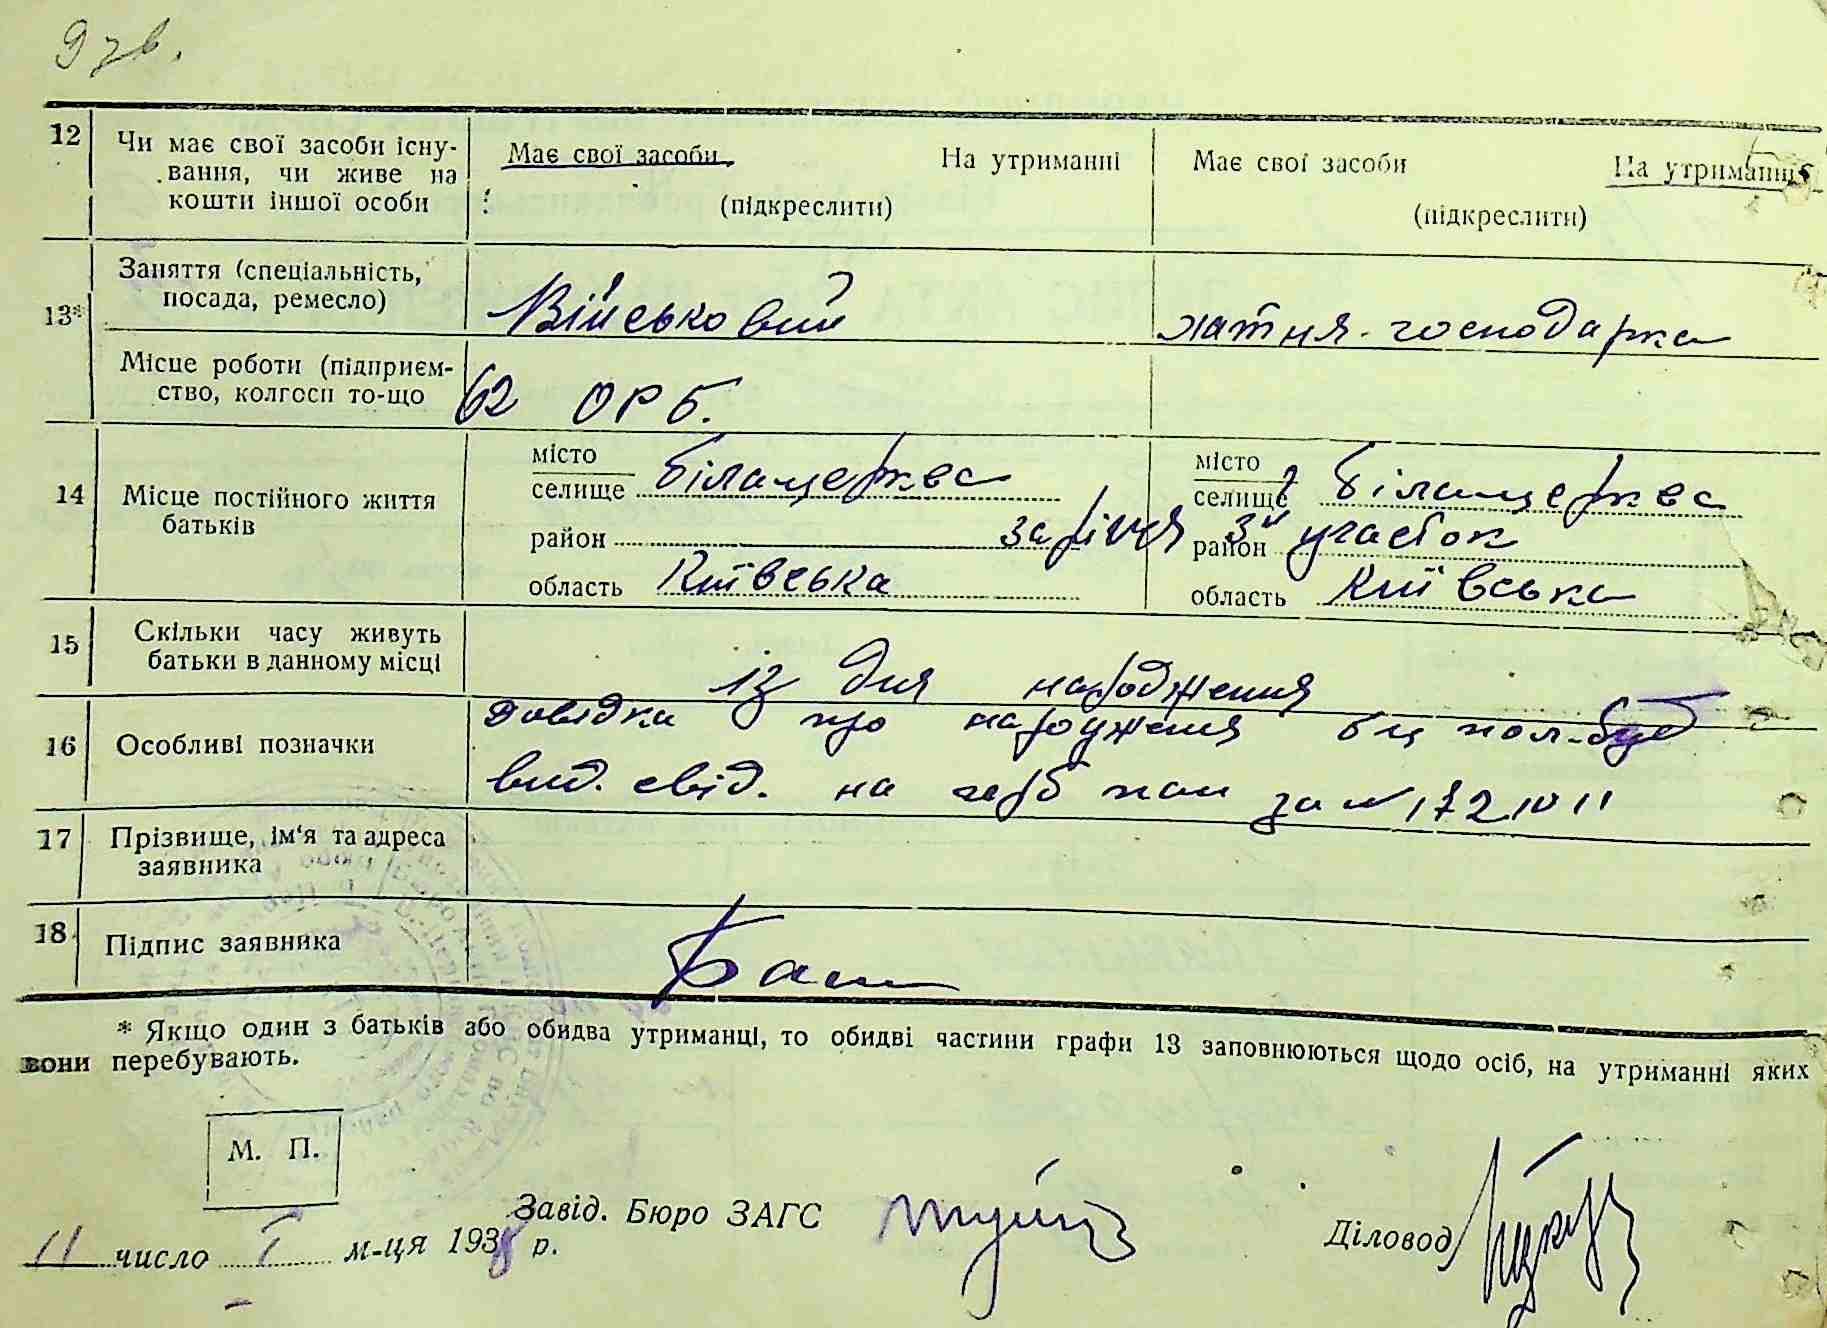 9 зв.
12 Чи має свої засоби існу-
вання, чи живе на
кошти іншої особи
Має свої засоби На утриманні
(підкреслити)
Має свої засоби На утриманні
(підкреслити)
13* Заняття (спеціальність,
посада, ремесло)
Військовий
хатня-господарка
Місце роботи (підприєм-
ство, колгосп то-що
62 ОРБ.
14 Місце постійного життя
батьків
місто
селище Білацерква
район Заріччя
область Київська
місто
селище Білацерква
район 3й участок
область Київська
15 Скільки часу живуть
батьки в данному місці
із дня народження
16 Особливі позначки
Довідка про народження
вид. свід. на за № 172
17 Прізвище, ім'я та адреса
заявника
18. Підпис заявника
* Якщо один з батьків або обидва утриманці, то обидві частини графи 13 заповнюються щодо осіб, на утриманні яких
вони перебувають.
М. П.
Завід. Бюро ЗАГС
Діловод
11 число I м-ця 1938 р.